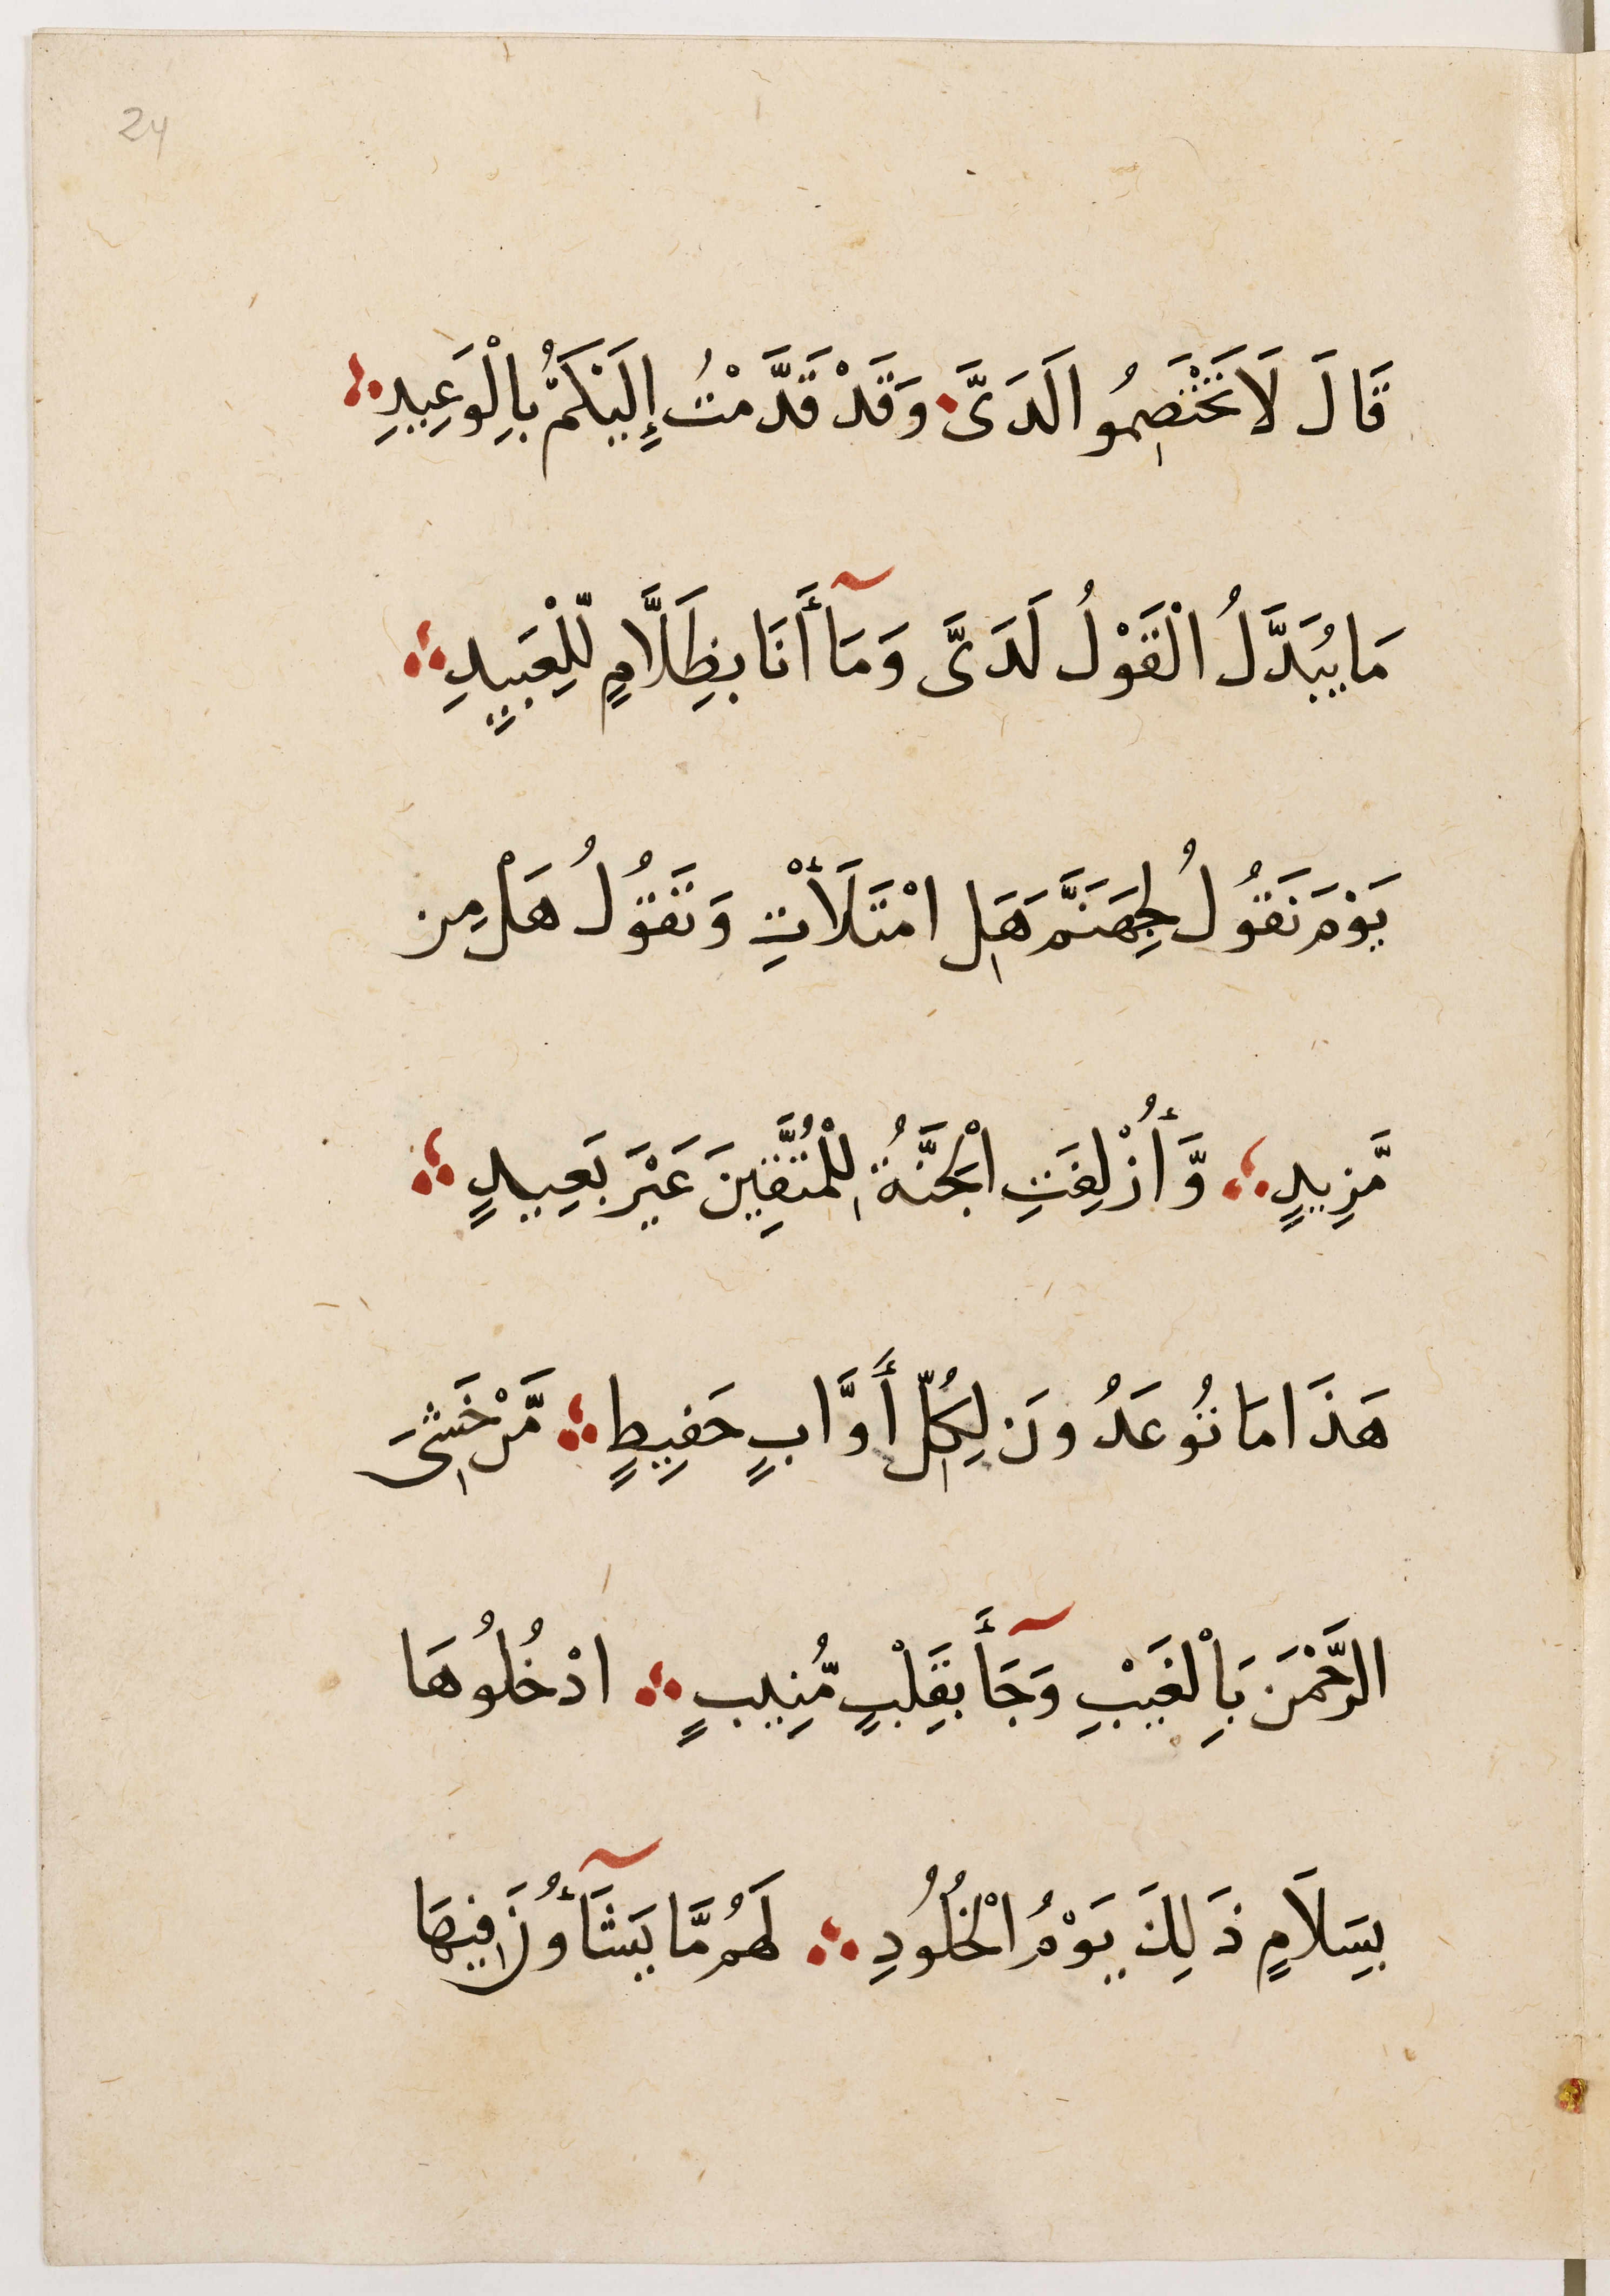 24
قَالَ لَا تَخْتَصِمُوا لَدَىَّ وَقَدْ قَدَّمْتُ إِلَيْكُمْ بِالْوَعِيدِ
مَا يُبَدَّلُ الْقَوْلُ لَدَىَّ وَمَآ أَنَا بِظَلَّامٍ لِّلْعَبِيدِ
يَوْمَ نَقُولُ لِجَهَنَّمَ هَلِ امْتَلَأْتِ وَتَقُولُ هَلْ مِن
مَّزِيدٍ وَّأُزْلِفَتِ الْجَنَّةُ لِلْمُتَّقِينَ غَيْرَ بَعِيدٍ
هَذَا مَا تُوعَدُونَ لِكُلِّ أَوَّابٍ حَفِيظٍ مَّنْ خَشِىَ
الرَّحْمَنَ بِالْغَيْبِ وَجَآأَ بِقَلْبٍ مُّنِيبٍ ادْخُلُوهَا
بِسَلَامٍ ذَلِكَ يَوْمُ الْخُلُودِ لَهُم مَّا يَشَآأُونَ فِيهَا